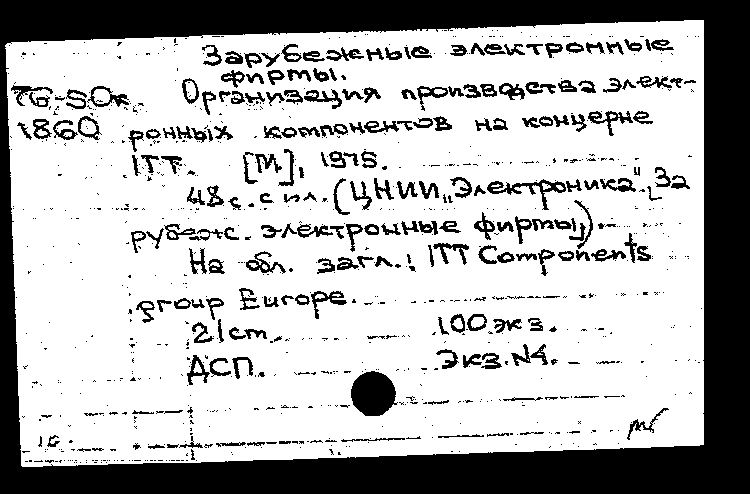 Зарубежные электронные
фирмы.
76-50к. Организация производства элект-
1860 ронных компонентов на концерне
ITT. [М.], 1975.
48 с. с ил. (ЦНИИ „Электроника". За
рубеж. электронные фирмы).-
На обл. загл.: ITT Components
group Europe.
21 cm. 100 экз.
ДСП. Экз. N4.
16.